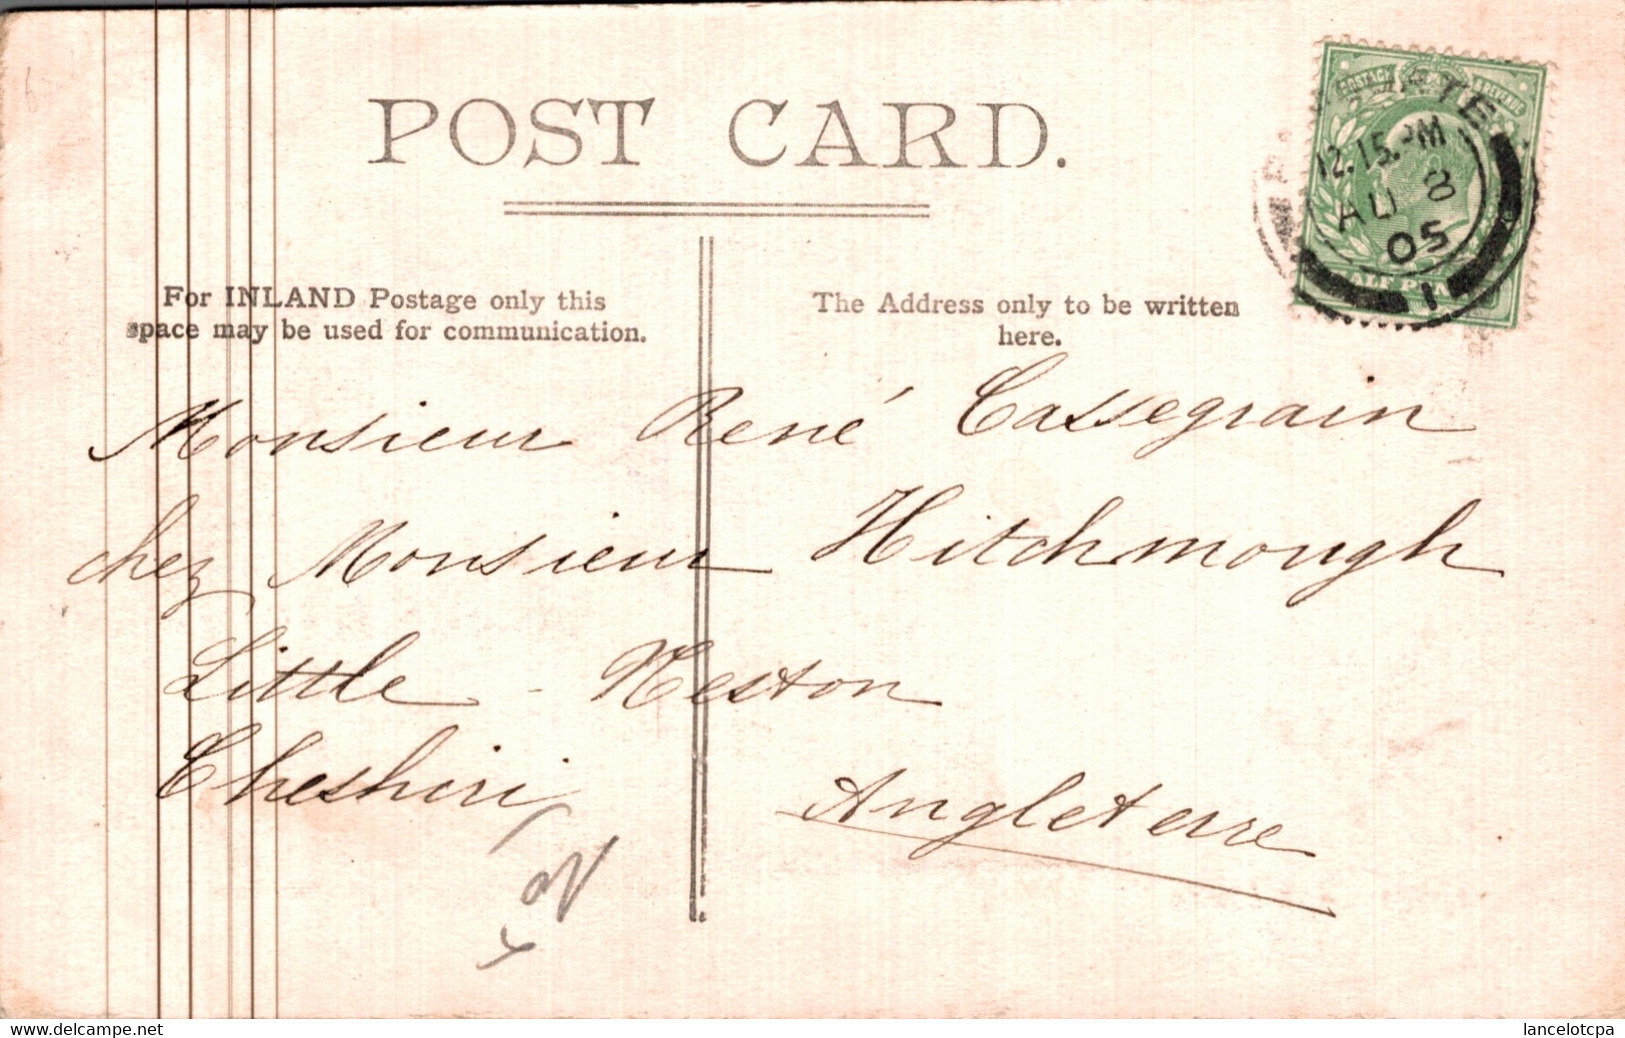 POST CARD.
For INLAND Postage only this
space may be used for communication.
The Address only to be written
here.
POSTAGE & REVENUE
12.15.PM
AU 8
05
1
HALF PENNY
Monsieur René Cassegrain
chez Monsieur Hitchmough
Little - Neston
Cheshiri
Angleterre
delcampe.net
lancelotcpa